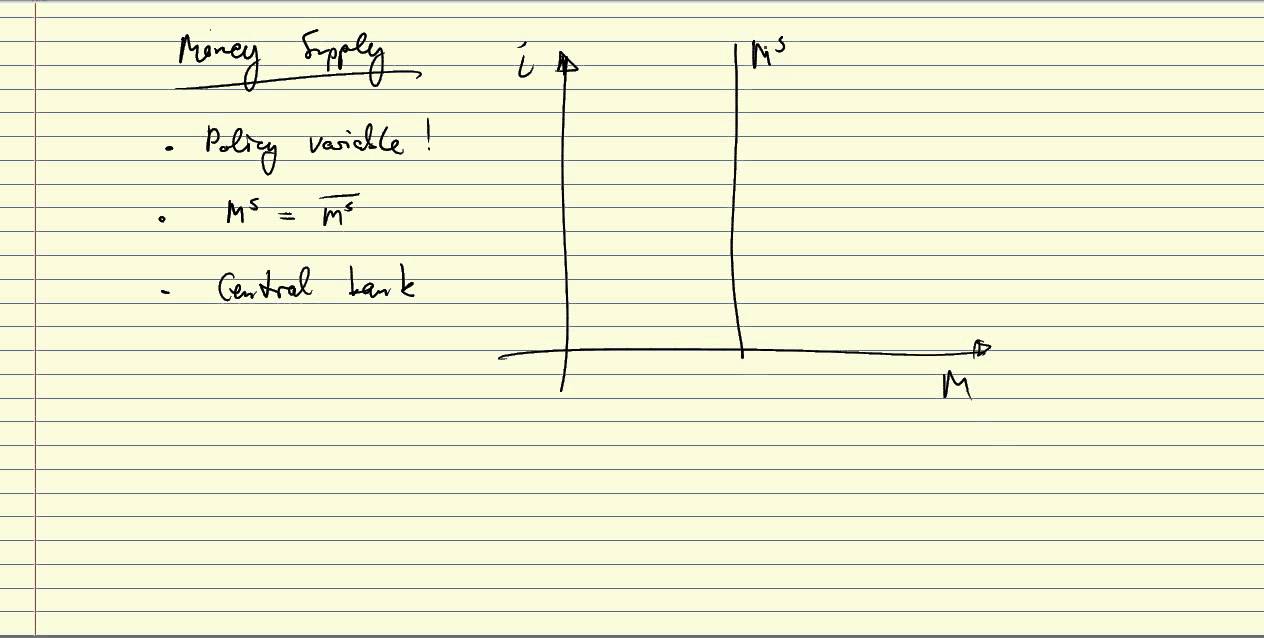 Money Supply
• Policy variable!
• Mˢ = m̅ˢ
- Central bank
i
Mˢ
M